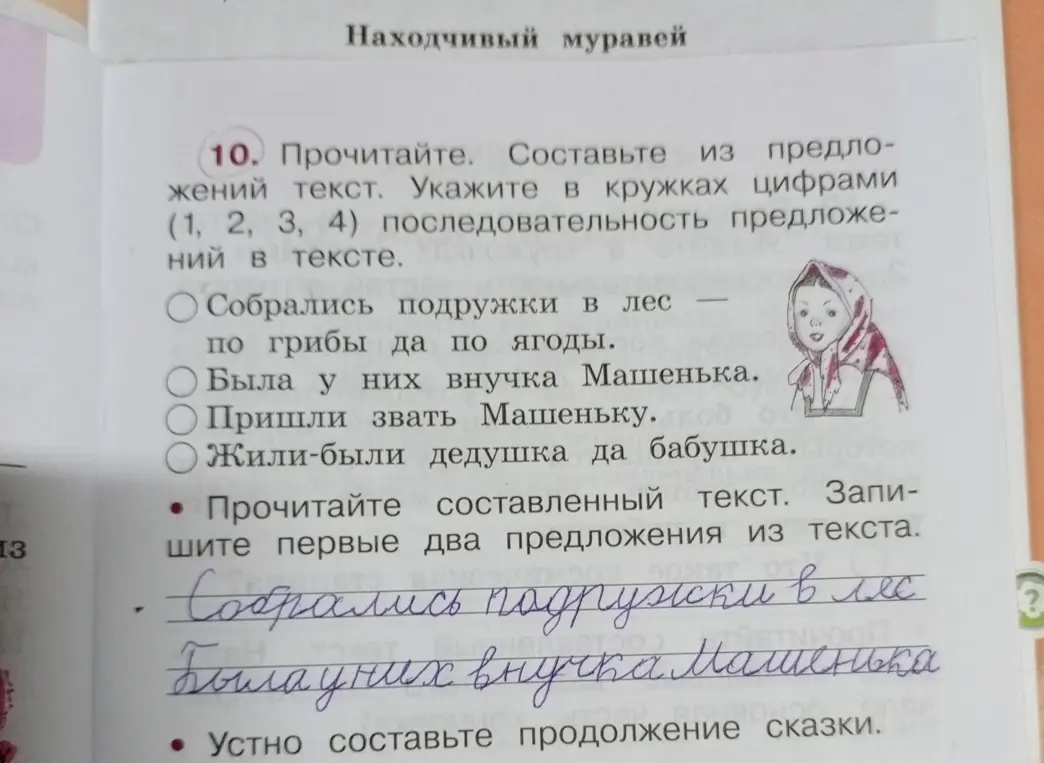 Находчивый муравей
10. Прочитайте. Составьте из предло-
жений текст. Укажите в кружках цифрами
(1, 2, 3, 4) последовательность предложе-
ний в тексте.
Собрались подружки в лес —
по грибы да по ягоды.
Была у них внучка Машенька.
Пришли звать Машеньку.
Жили-были дедушка да бабушка.
• Прочитайте составленный текст. Запи-
шите первые два предложения из текста.
из
Собрались подружки в лес
?
Была у них внучка Машенька
• Устно составьте продолжение сказки.